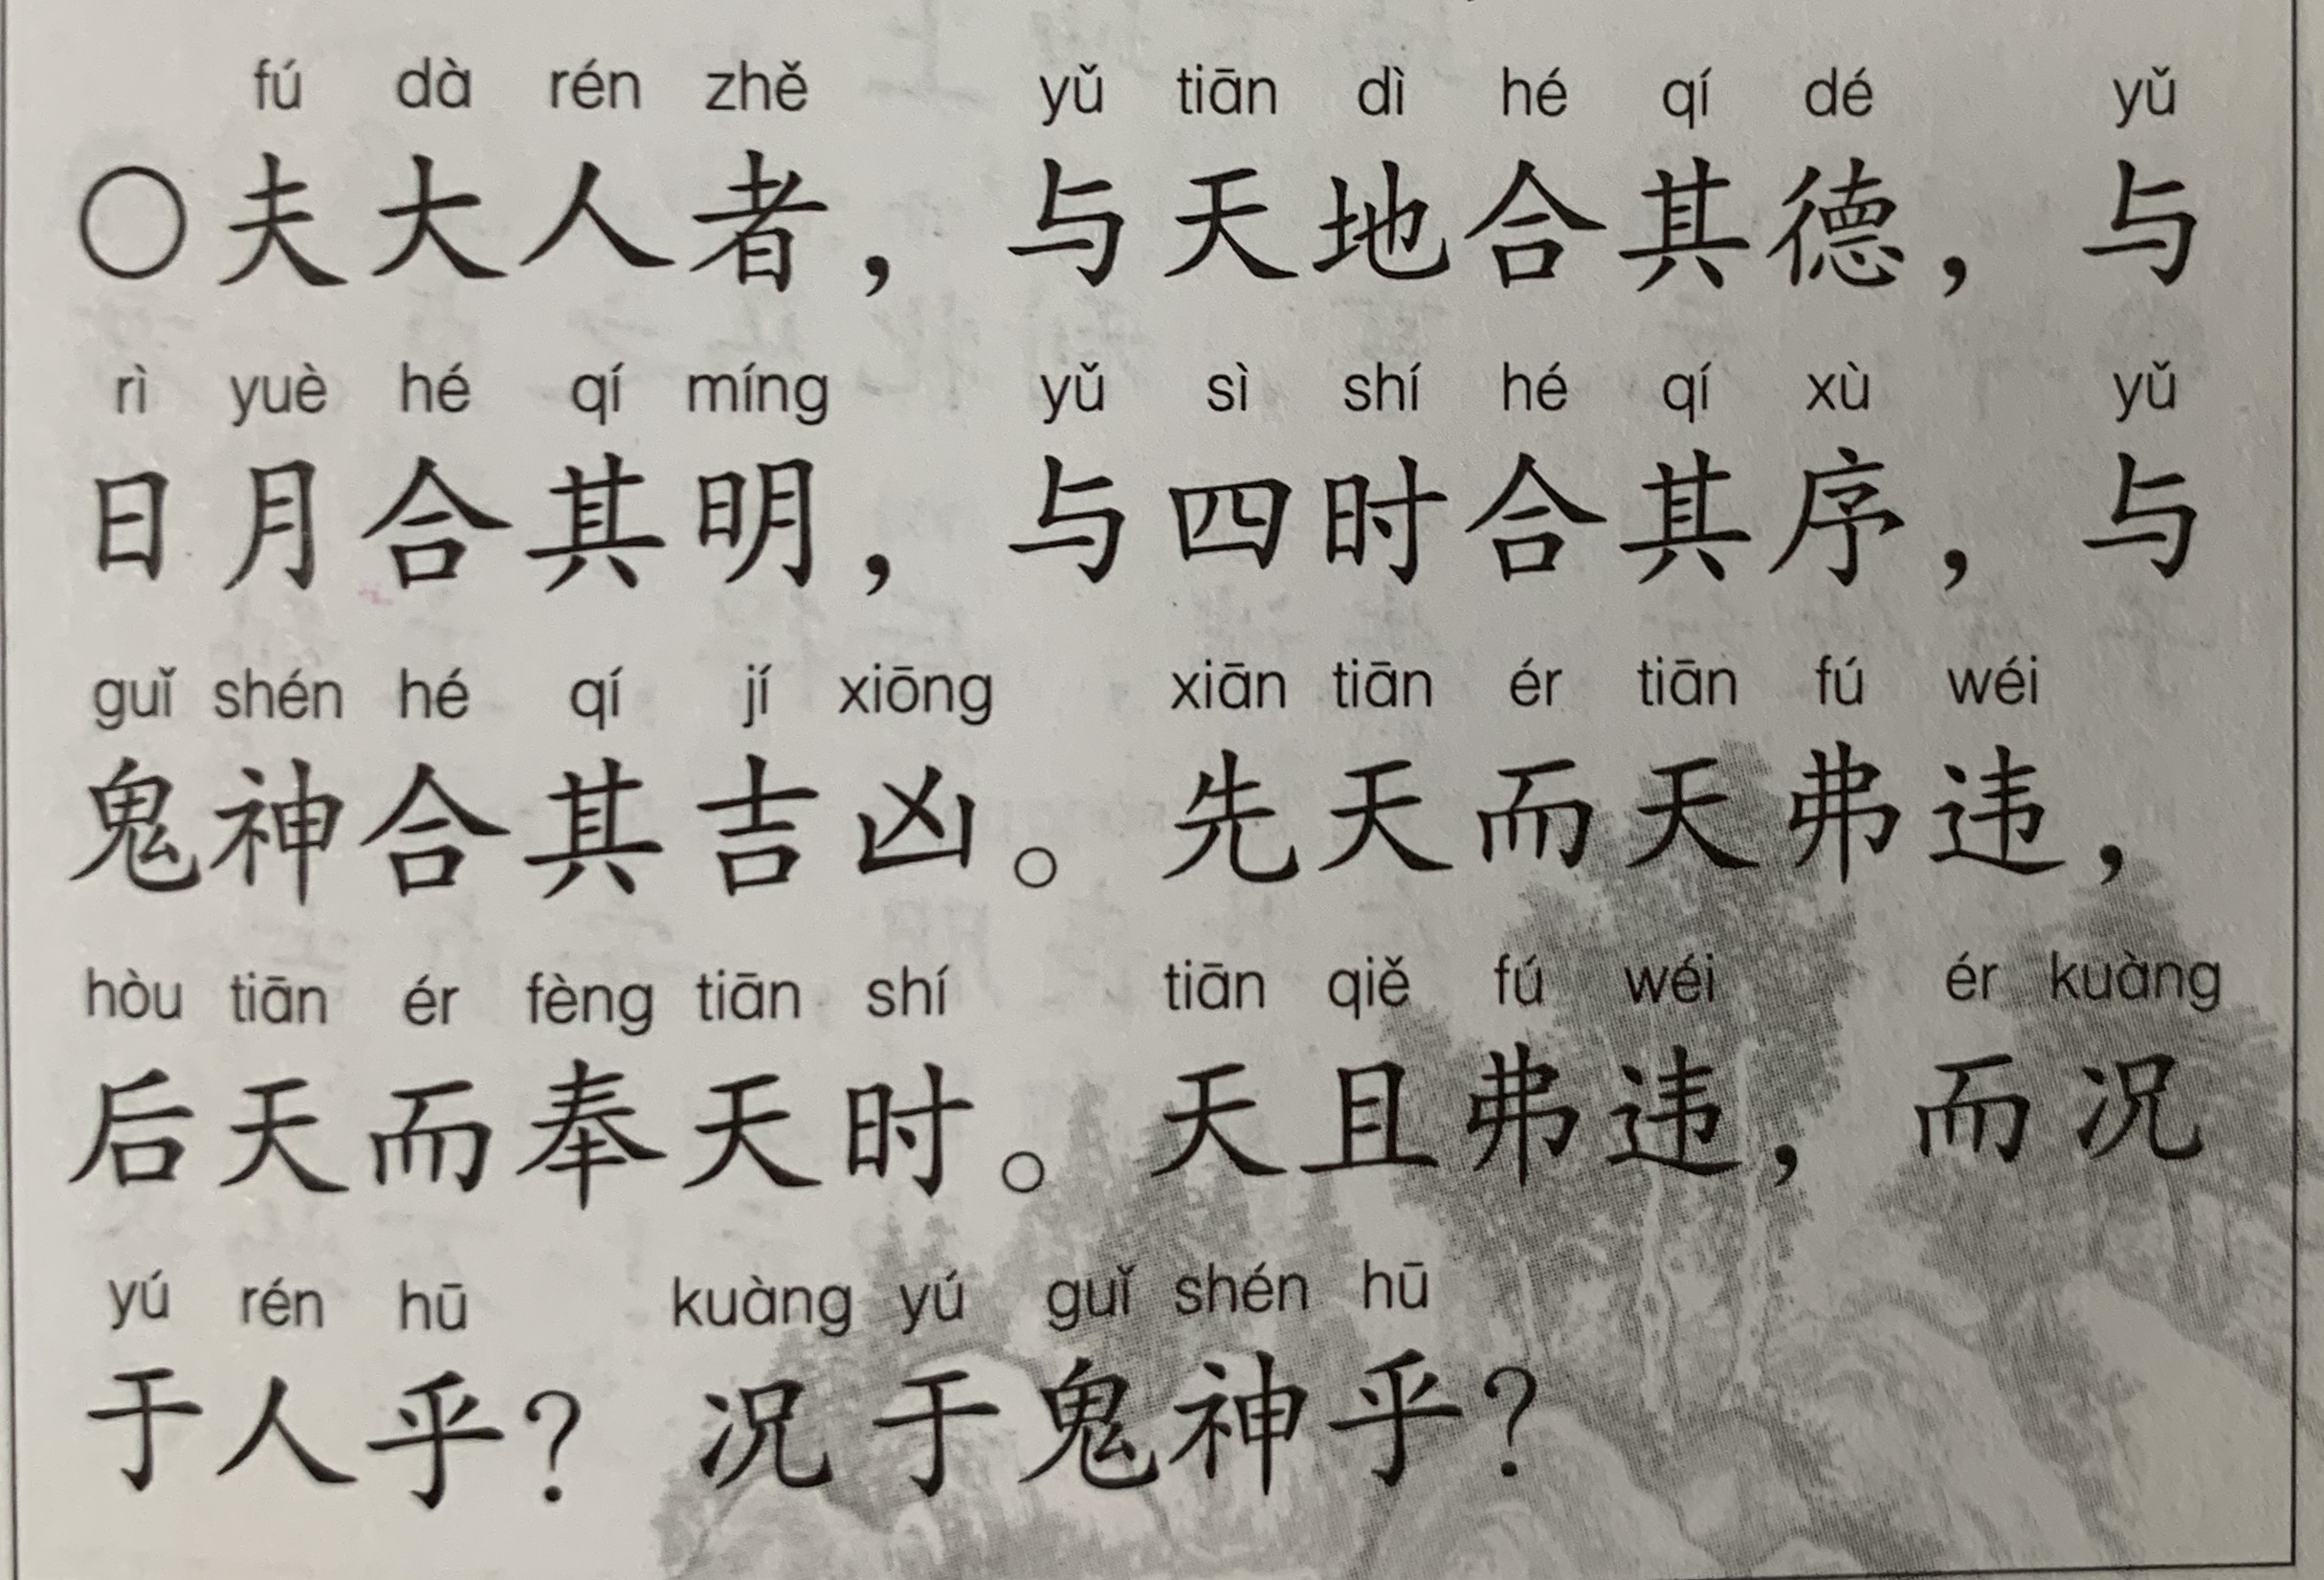 fú dà rén zhě yǔ tiān dì hé qí dé yǔ
○夫大人者，与天地合其德，与
rì yuè hé qí míng yǔ sì shí hé qí xù yǔ
日月合其明，与四时合其序，与
guǐ shén hé qí jí xiōng xiān tiān ér tiān fú wéi
鬼神合其吉凶。先天而天弗违，
hòu tiān ér fèng tiān shí tiān qiě fú wéi ér kuàng
后天而奉天时。天且弗违，而况
yú rén hū kuàng yú guǐ shén hū
于人乎？况于鬼神乎？